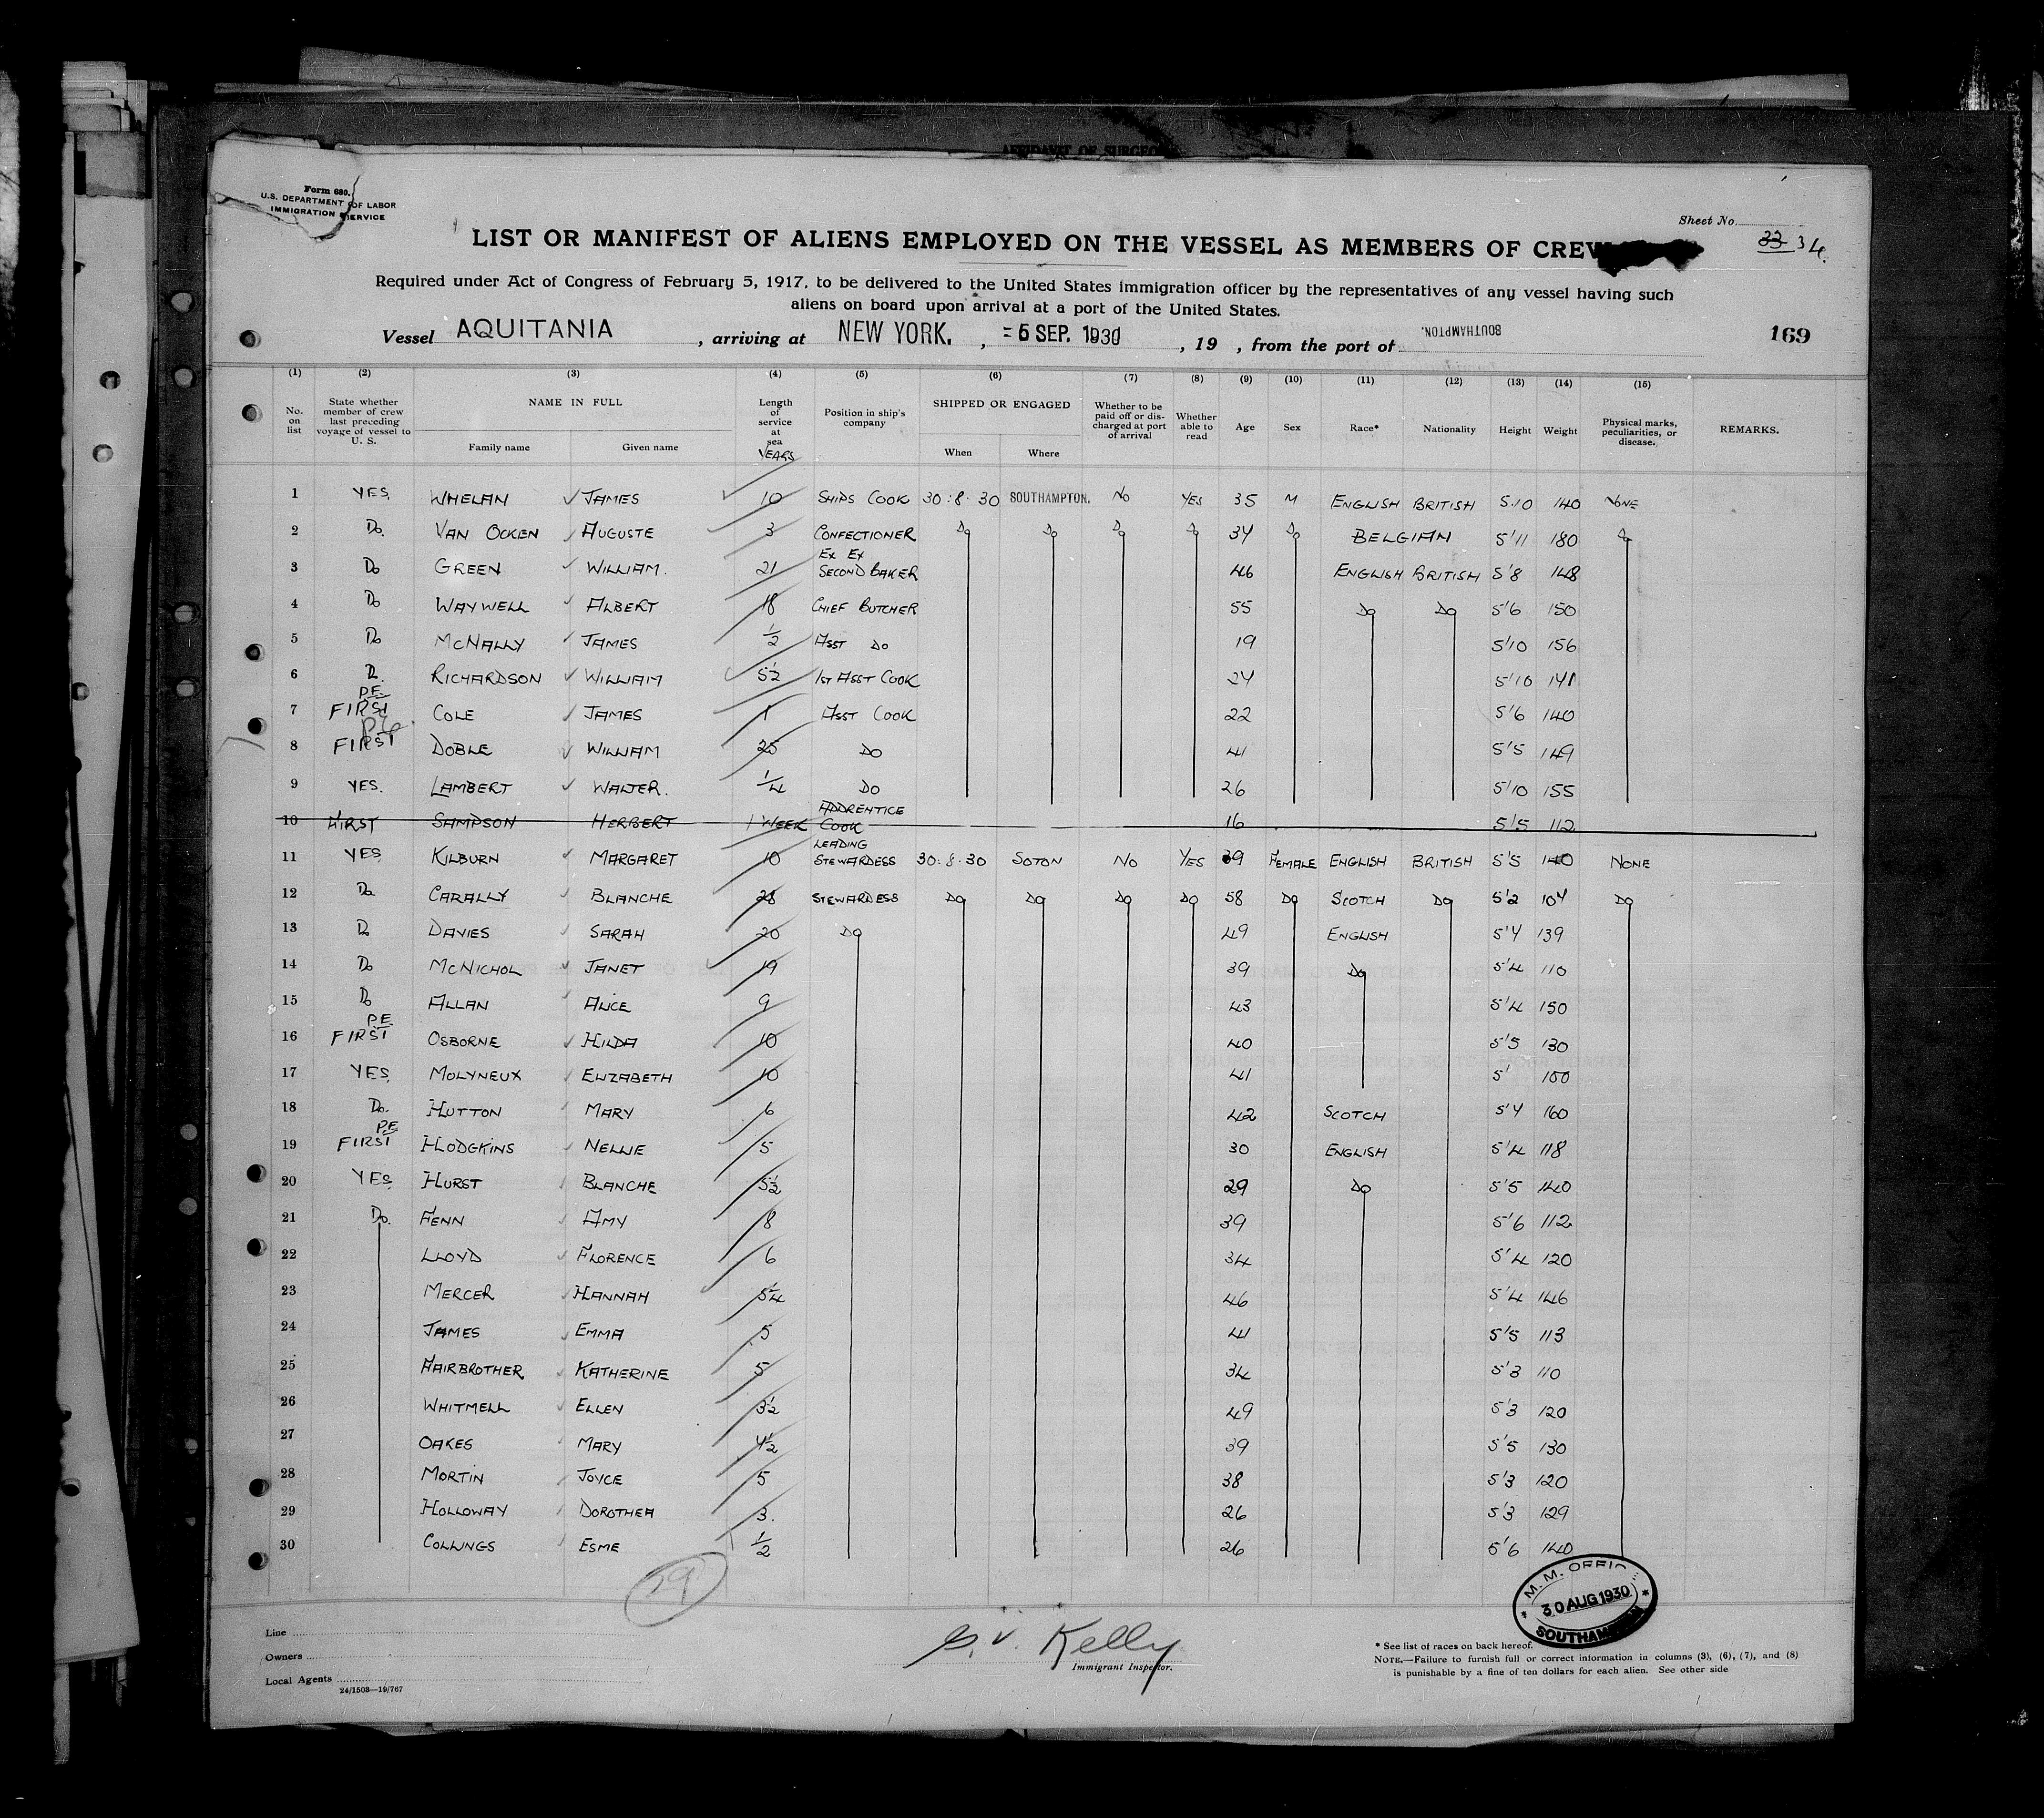 AFFIDAVIT OF SURGEON
Form 680.
U.S. DEPARTMENT OF LABOR
IMMIGRATION SERVICE
Sheet No.
33 34.
LIST OR MANIFEST OF ALIENS EMPLOYED ON THE VESSEL AS MEMBERS OF CREW
Required under Act of Congress of February 5, 1917, to be delivered to the United States immigration officer by the representatives of any vessel having such
aliens on board upon arrival at a port of the United States.
Vessel AQUITANIA, arriving at NEW YORK., - 5 SEP. 1930, 19 , from the port of SOUTHAMPTON. 169
(1) (2) (3) (4) (5) (6) (7) (8) (9) (10) (11) (12) (13) (14) (15)
No. on list State whether member of crew last preceding voyage of vessel to U. S. NAME IN FULL Family name Given name Length of service at sea YEARS Position in ship's company SHIPPED OR ENGAGED When Where Whether to be paid off or discharged at port of arrival Whether able to read Age Sex Race* Nationality Height Weight Physical marks, peculiarities, or disease. REMARKS.
1 YES WHELAN JAMES 10 SHIPS COOK 30:8.30 SOUTHAMPTON. NO YES 35 M ENGLISH BRITISH 5.10 140 NONE
2 Do. VAN OCKEN AUGUSTE 3 CONFECTIONER Do Do Do Do 34 Do BELGIAN 5'11 180 Do
3 Do GREEN WILLIAM. 21 EX EX SECOND BAKER 46 ENGLISH BRITISH 5'8 148
4 Do WAYWELL ALBERT 18 CHIEF BUTCHER 55 Do Do 5'6 150
5 Do MCNALLY JAMES 1/2 ASST DO 19 5'10 156
6 Do. RICHARDSON WILLIAM 5½ 1ST ASST COOK 24 5'10 141
7 P.E. FIRST COLE JAMES 1 ASST COOK 22 5'6 140
8 P.E. FIRST DOBLE WILLIAM 25 DO 41 5'5 149
9 YES. LAMBERT WALTER. 1/4 DO 26 5'10 155
10 FIRST SAMPSON HERBERT 1 WEEK APPRENTICE COOK 16 5'5 112
11 YES KILBURN MARGARET 10 LEADING STEWARDESS 30.8.30 SOTON NO YES 39 FEMALE ENGLISH BRITISH 5'5 140 NONE
12 Do CARALLY BLANCHE 28 STEWARDESS DO DO DO DO 58 DO SCOTCH DO 5'2 104 DO
13 Do DAVIES SARAH 20 DO 49 ENGLISH 5'4 139
14 Do MCNICHOL JANET 19 39 DO 5'4 110
15 Do ALLAN ALICE 9 43 5'4 150
16 P.E. FIRST OSBORNE HILDA 10 40 5'5 130
17 YES. MOLYNEUX ELIZABETH 10 41 5' 100
18 Do. HUTTON MARY 6 42 SCOTCH 5'4 160
19 P.E. FIRST HODGKINS NELLIE 5 30 ENGLISH 5'4 118
20 YES HURST BLANCHE 5½ 29 DO 5'5 140
21 Do. FENN AMY 8 39 5'6 112
22 LLOYD FLORENCE 6 34 5'4 120
23 MERCER HANNAH 5¼ 46 5'4 146
24 JAMES EMMA 5 41 5'5 113
25 FAIRBROTHER KATHERINE 5 34 5'3 110
26 WHITMELL ELLEN 3½ 49 5'3 120
27 OAKES MARY 4½ 39 5'5 130
28 MORTIN JOYCE 5 38 5'3 120
29 HOLLOWAY DOROTHEA 3. 26 5'3 129
30 COLLINGS ESME 1/2 26 5'6 140
29
M. M. OFFIC
30 AUG 1930
SOUTHAMPTON
Line
Owners
Local Agents
24/1503—19/767
Kelly
Immigrant Inspector.
* See list of races on back hereof.
NOTE.—Failure to furnish full or correct information in columns (3), (6), (7), and (8)
is punishable by a fine of ten dollars for each alien. See other side